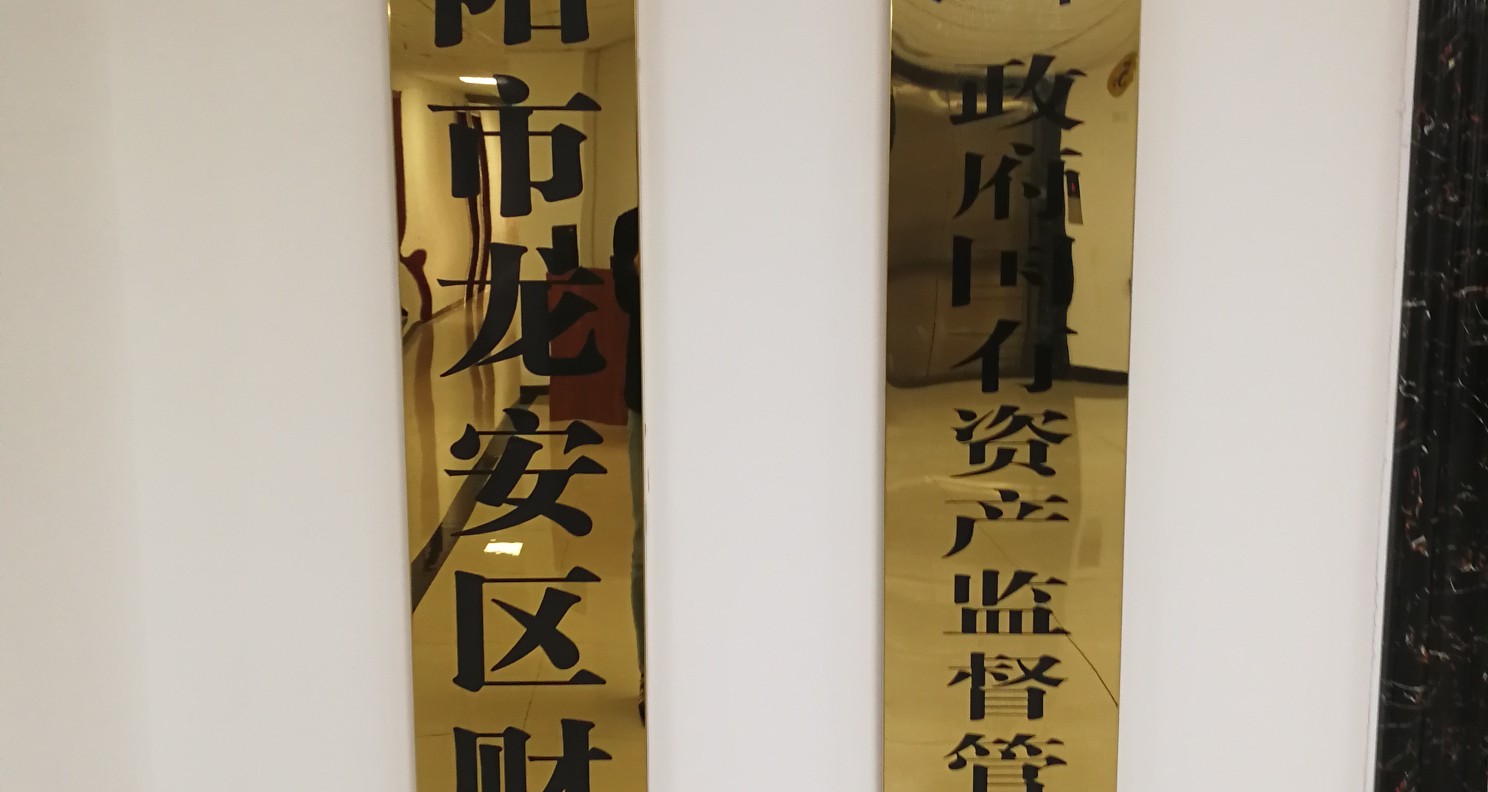 阳市龙安区财
政府国有资产监督管